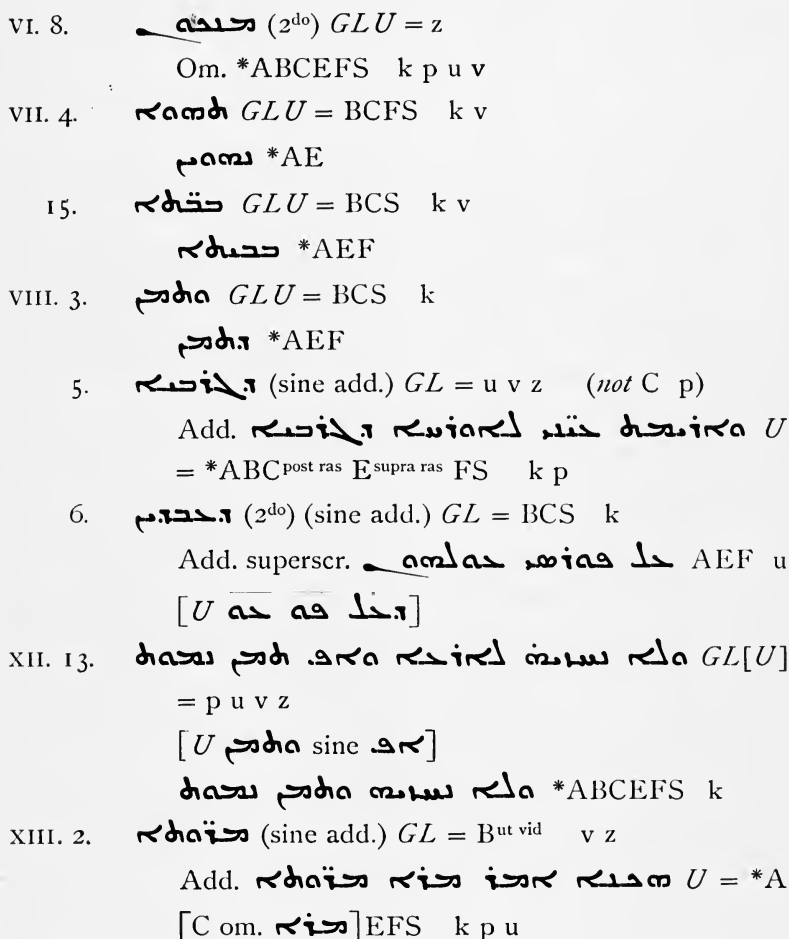 VI. 8. ܡܢܟܘܢ (2do) GLU = z
Om. *ABCEFS k p u v
VII. 4. ܬܗܘܐ GLU = BCFS k v
ܢܗܘܝܢ *AE
15. ܒܒ̈ܬܐ GLU = BCS k v
ܒܒܝܬܐ *AEF
VIII. 3. ܘܬܡܢ GLU = BCS k
ܕܬܡܢ *AEF
5. ܕܓܪܒܝܐ (sine add.) GL = u v z (not C p)
Add. ܘܐܪܝܡܬ ܥܝܢ̈ܝ ܠܐܘܪܚܐ ܕܓܪܒܝܐ U
= *ABC post ras E supra ras FS k p
6. ܕܥܒܕܝܢ (2do) (sine add.) GL = BCS k
Add. superscr. ܥܠ ܦܘܪܣ ܥܘܠܗܘܢ AEF u
[U ܕܥܠ ܦܘ ܥܘ]
XII. 13. ܘܠܐ ܢܚܙܝܗ̇ ܠܐܪܥܐ ܘܐܦ. ܬܡܢ ܢܡܘܬ GL[U]
= p u v z
[U ܘܬܡܢ sine ܐܦ.]
ܘܠܐ ܢܚܙܝܗ ܘܬܡܢ ܢܡܘܬ *ABCEFS k
XIII. 2. ܡܪ̈ܘܬܐ (sine add.) GL = B ut vid v z
Add. ܗܟܢܐ ܐܡܪ ܡܪܐ ܡܪ̈ܘܬܐ U = *A
[C om. ܡܪܐ]EFS k p u